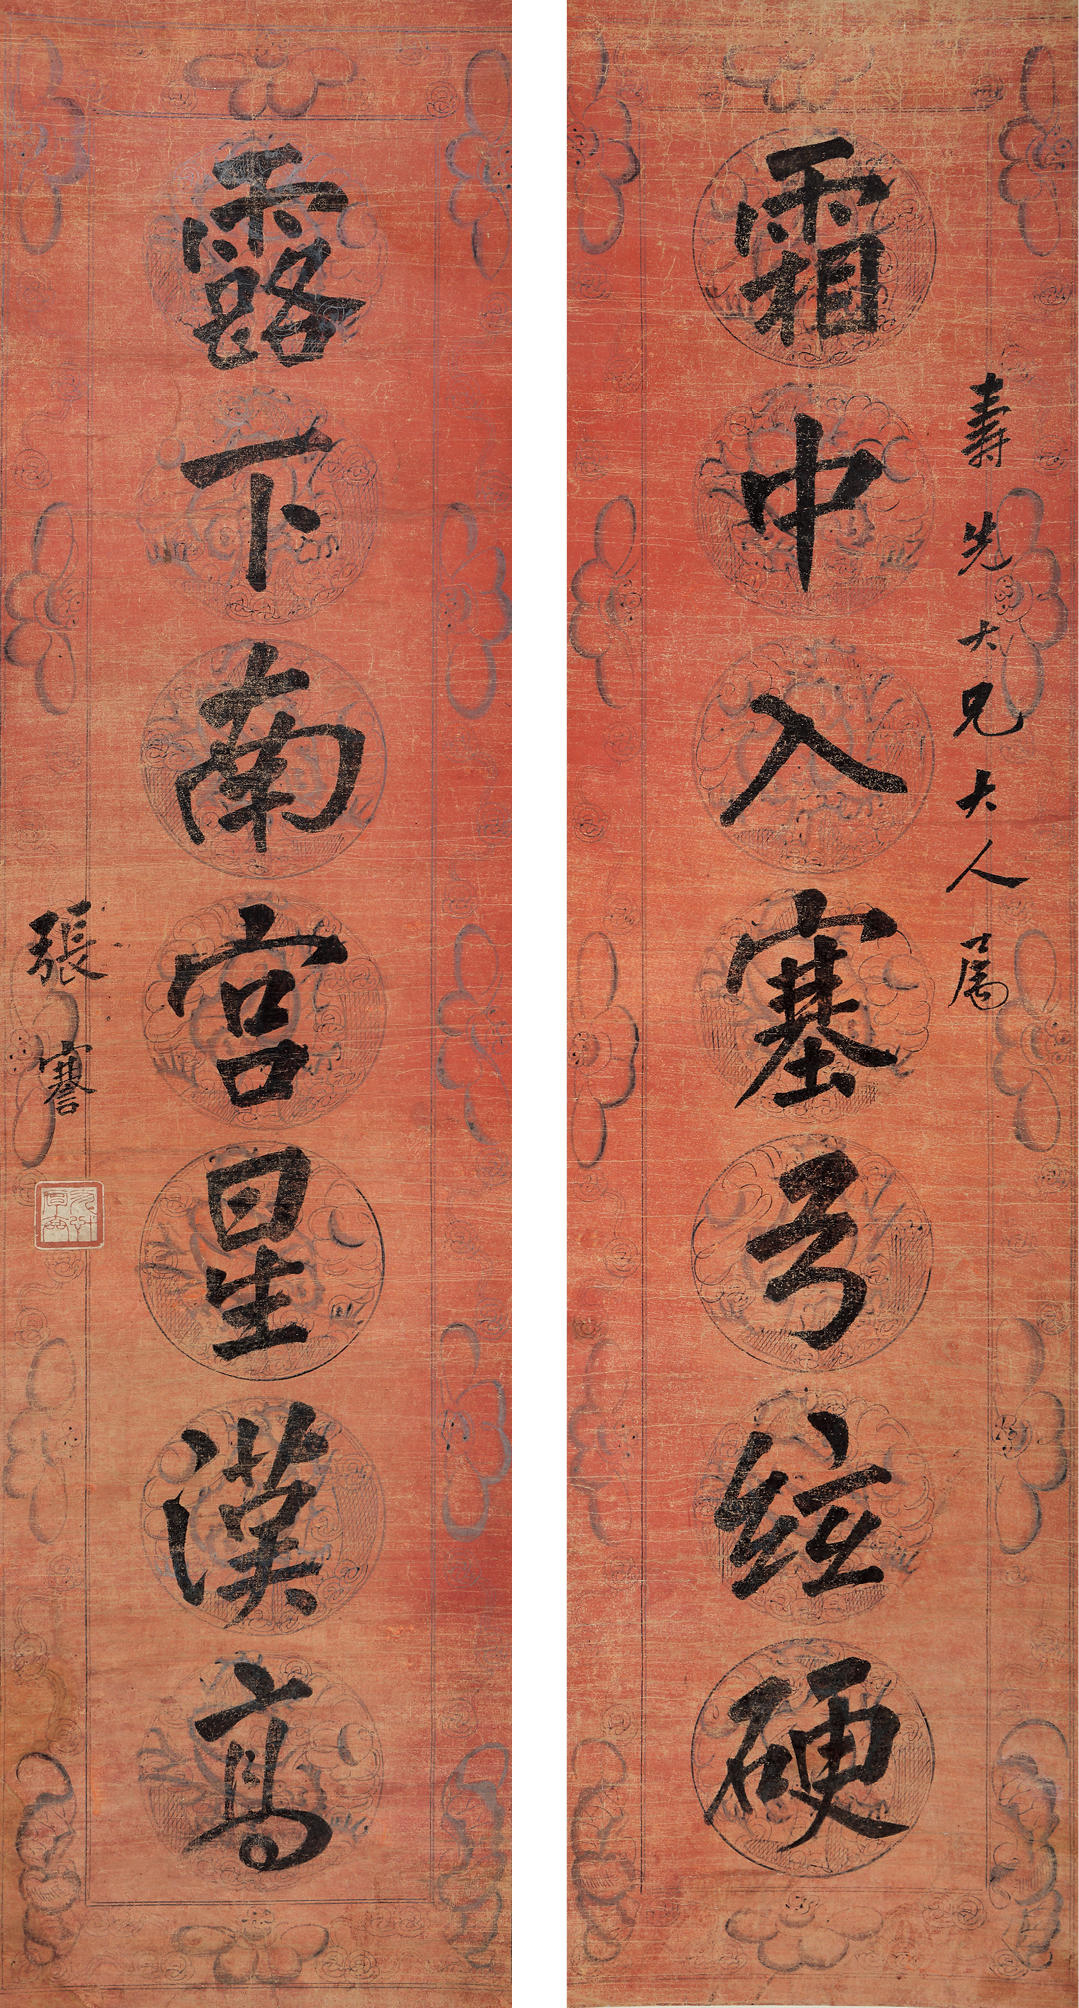 霜中入塞弓絃硬
壽先大兄大人属
露下南宮星漢高
張謇